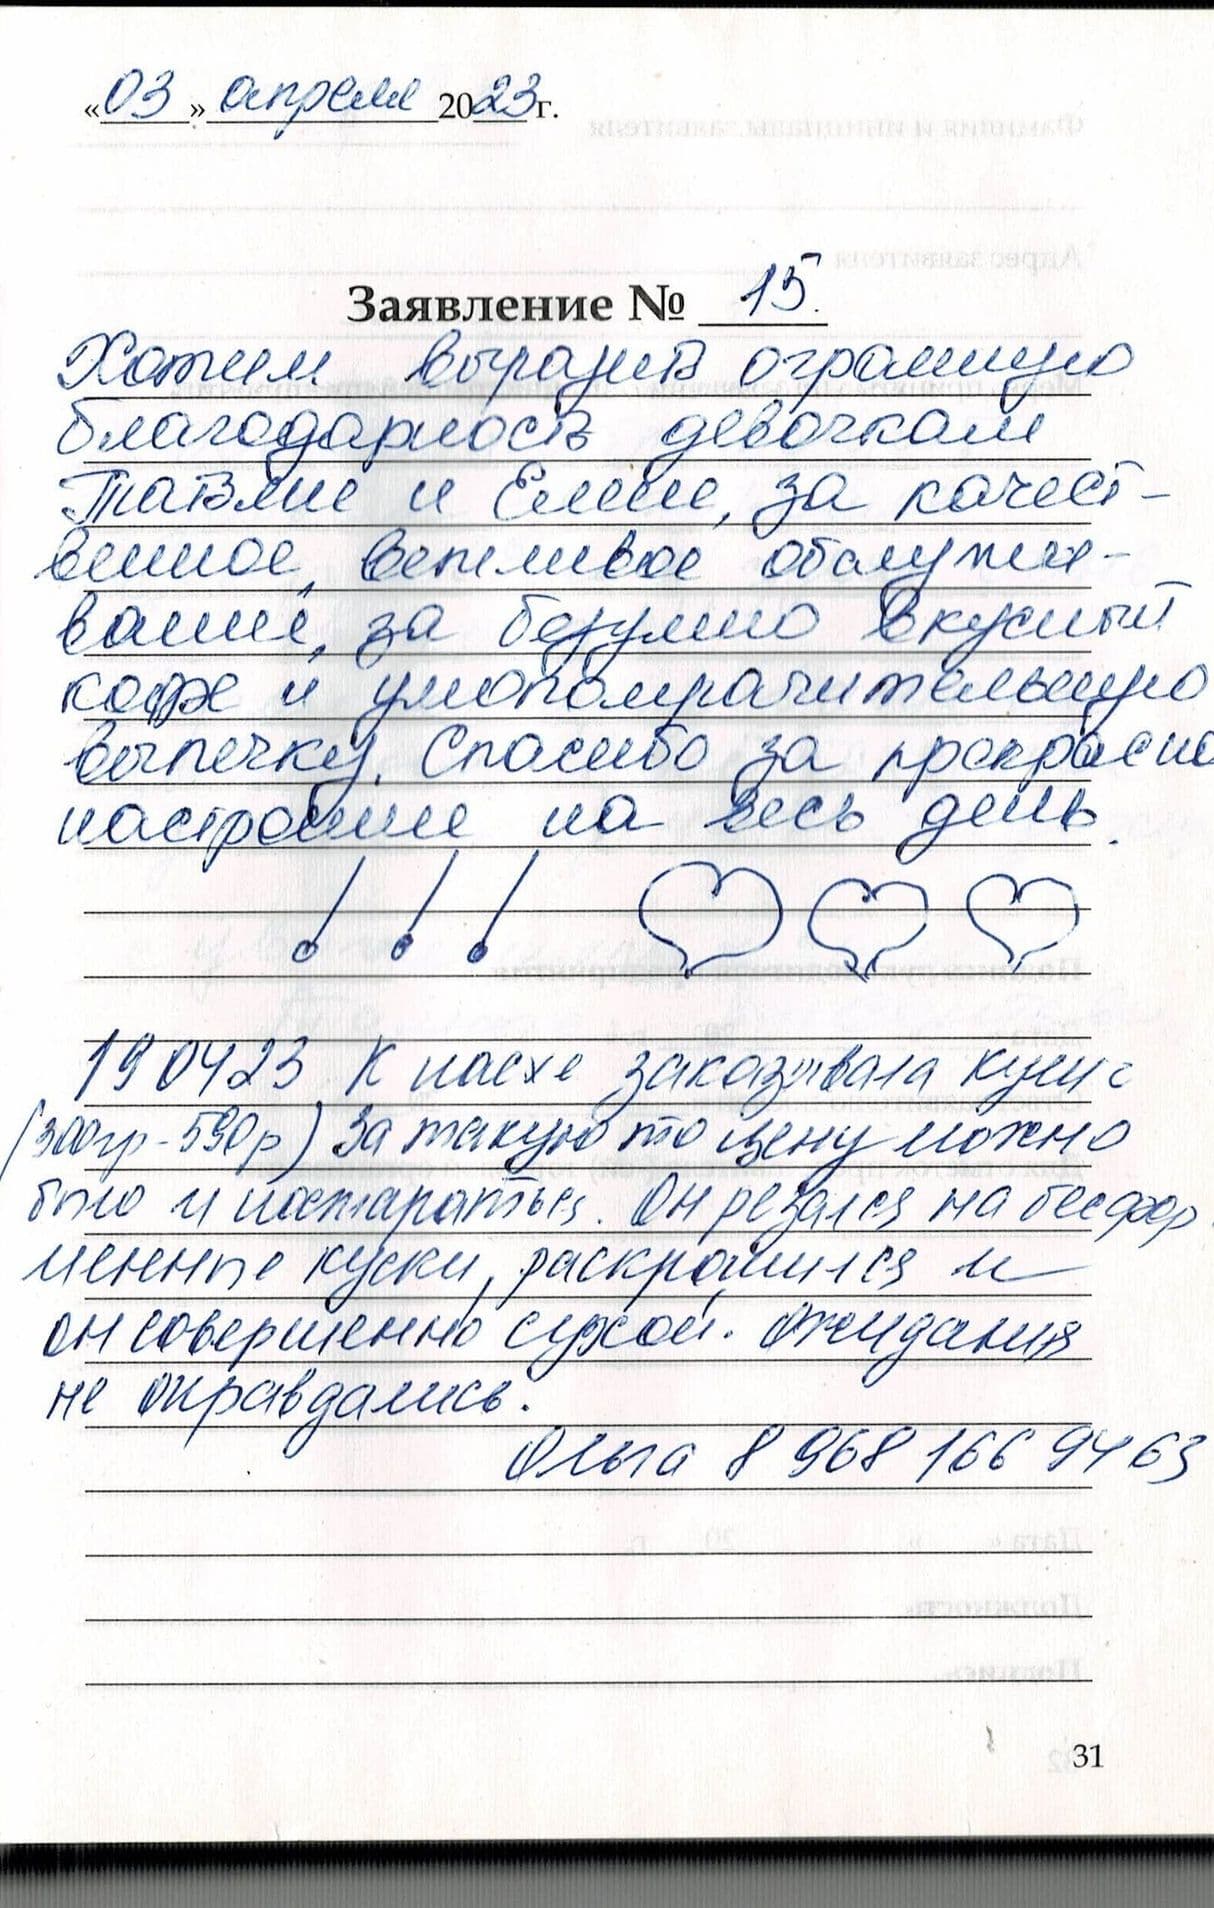 «03» апреля 2023 г.
Заявление № 15.
Хотим выразить огромную
благодарность девочкам
Татьяне и Елене, за качест-
венное, вежливое обслужи-
вание, за безумно вкусный
кофе и умопомрачительную
выпечку. Спасибо за прекрасно
настроение на весь день.
! ! ! ♡ ♡ ♡
19 04 23 К пасхе заказывала кулич
(300гр-590р) За такую то цену можно
было и постараться. Он резался на бесфор
менные куски, раскрошился и
он совершенно сухой. Ожидания
не оправдались.
Ольга 8 968 166 94 63
31